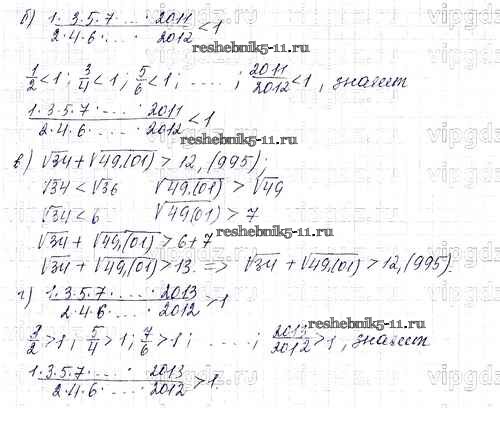 б) 1·3·5·7·...·2011 / 2·4·6·...·2012 < 1
reshebnik5-11.ru
1/2 < 1; 3/4 < 1; 5/6 < 1; ....; 2011/2012 < 1, значит
1·3·5·7·...·2011 / 2·4·6·...·2012 < 1
reshebnik5-11.ru
в) √34 + √49,(01) > 12,(995);
√34 < √36 √49,(01) > √49
√34 < 6 √49,(01) > 7
reshebnik5-11.ru
√34 + √49,(01) > 6+7
√34 + √49,(01) > 13. => √34 + √49,(01) > 12,(995).
г) 1·3·5·7·...·2013 / 2·4·6·...·2012 > 1
reshebnik5-11.ru
3/2 > 1; 5/4 > 1; 7/6 > 1; ....; 2013/2012 > 1, значит
1·3·5·7·...·2013 / 2·4·6·...·2012 > 1.